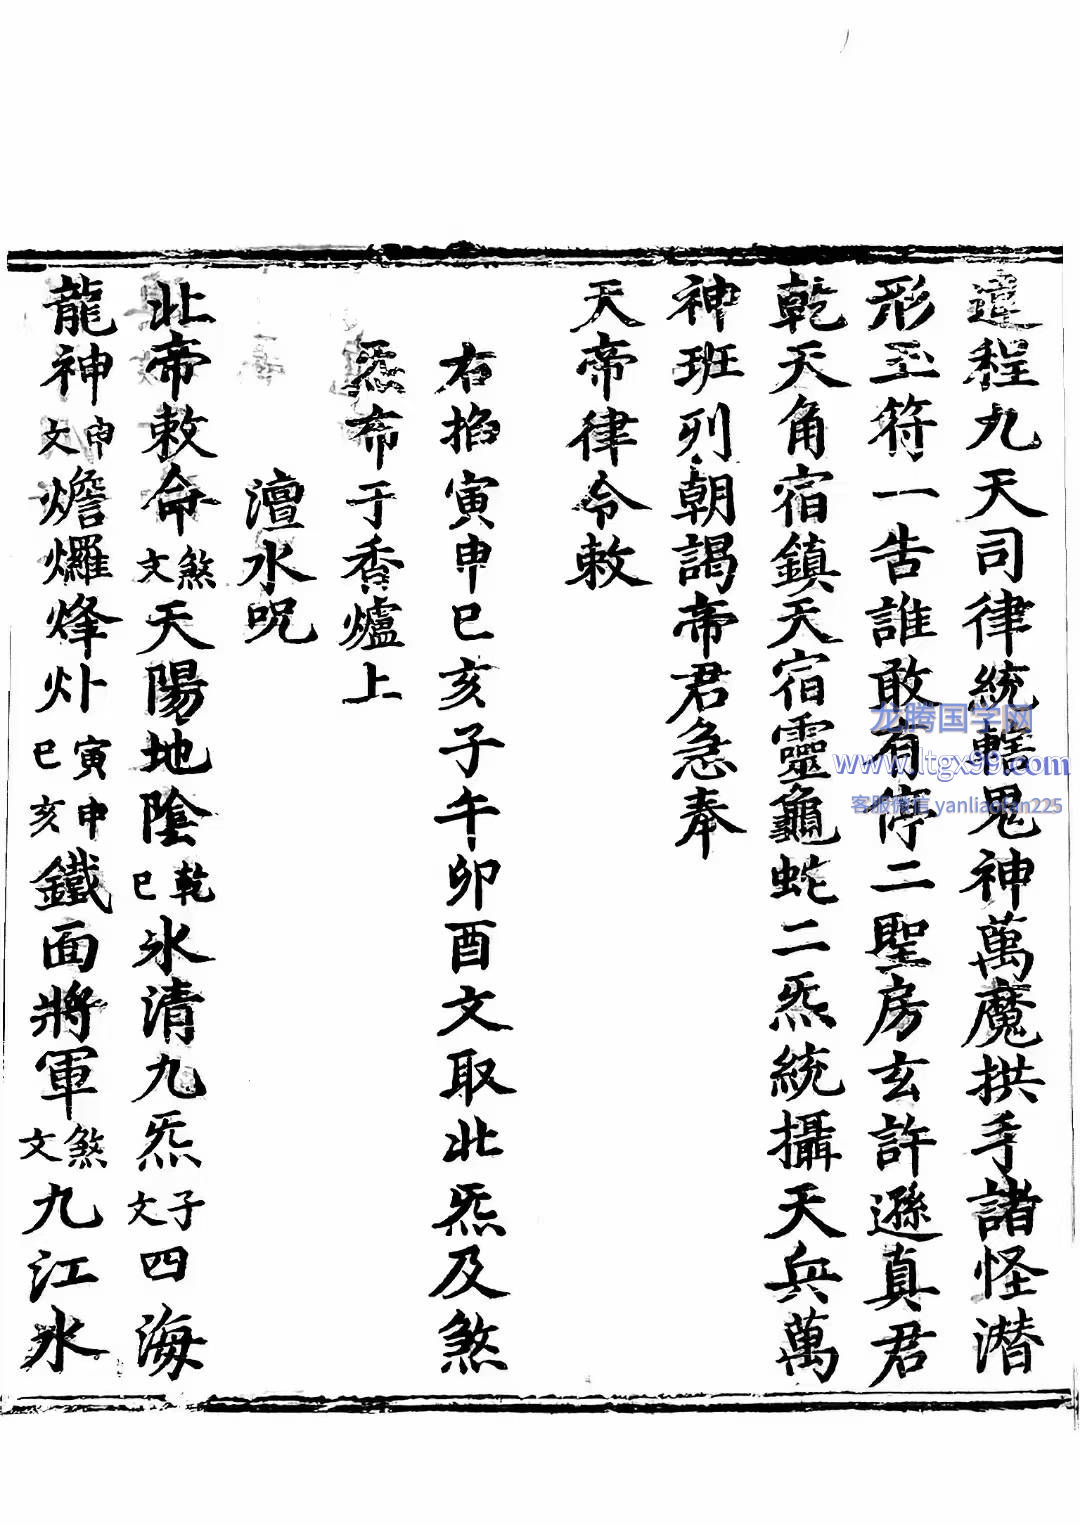 違程九天司律統轄鬼神萬魔拱手諸怪潜
形玉符一告誰敢有停二聖房玄許遜真君
乾天角宿鎮天宿靈龜蛇二炁統攝天兵萬
神班列朝謁帝君急奉
天帝律令敕
右掐寅申巳亥子午卯酉文取北炁及煞
炁布于香爐上
澶水咒
北帝敕命煞文天陽地陰乾巳氷清九炁子文四海
龍神申文熸爠烽灯寅申巳亥鐵面將軍煞文九江水
龙腾国学网
www.ltgx99.com
客服微信 yanliaofan225